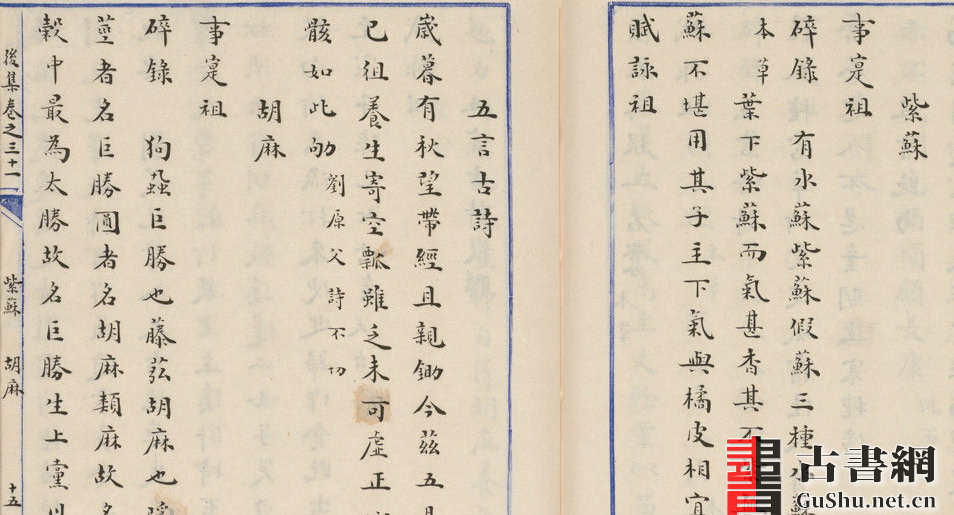 紫蘇
事寔祖
碎錄有水蘇紫蘇假蘇三種水蘇
本草葉下紫蘇而氣甚香其不
蘇不堪用其子主下氣與橘皮相宜
賦詠祖
五言古詩
歲暮有秋望帶經且親鋤今茲五月
已徂養生寄空瓢雖乏未可虛正
骸如此劬劉原父詩不切
胡麻
事寔祖
碎錄狗蝨巨勝也藤苰胡麻也
莖者名巨勝圓者名胡麻類麻故名
穀中最為太勝故名巨勝生上黨川
後集卷之三十一
紫蘇
胡麻
十五
古書網
GuShu.net.cn